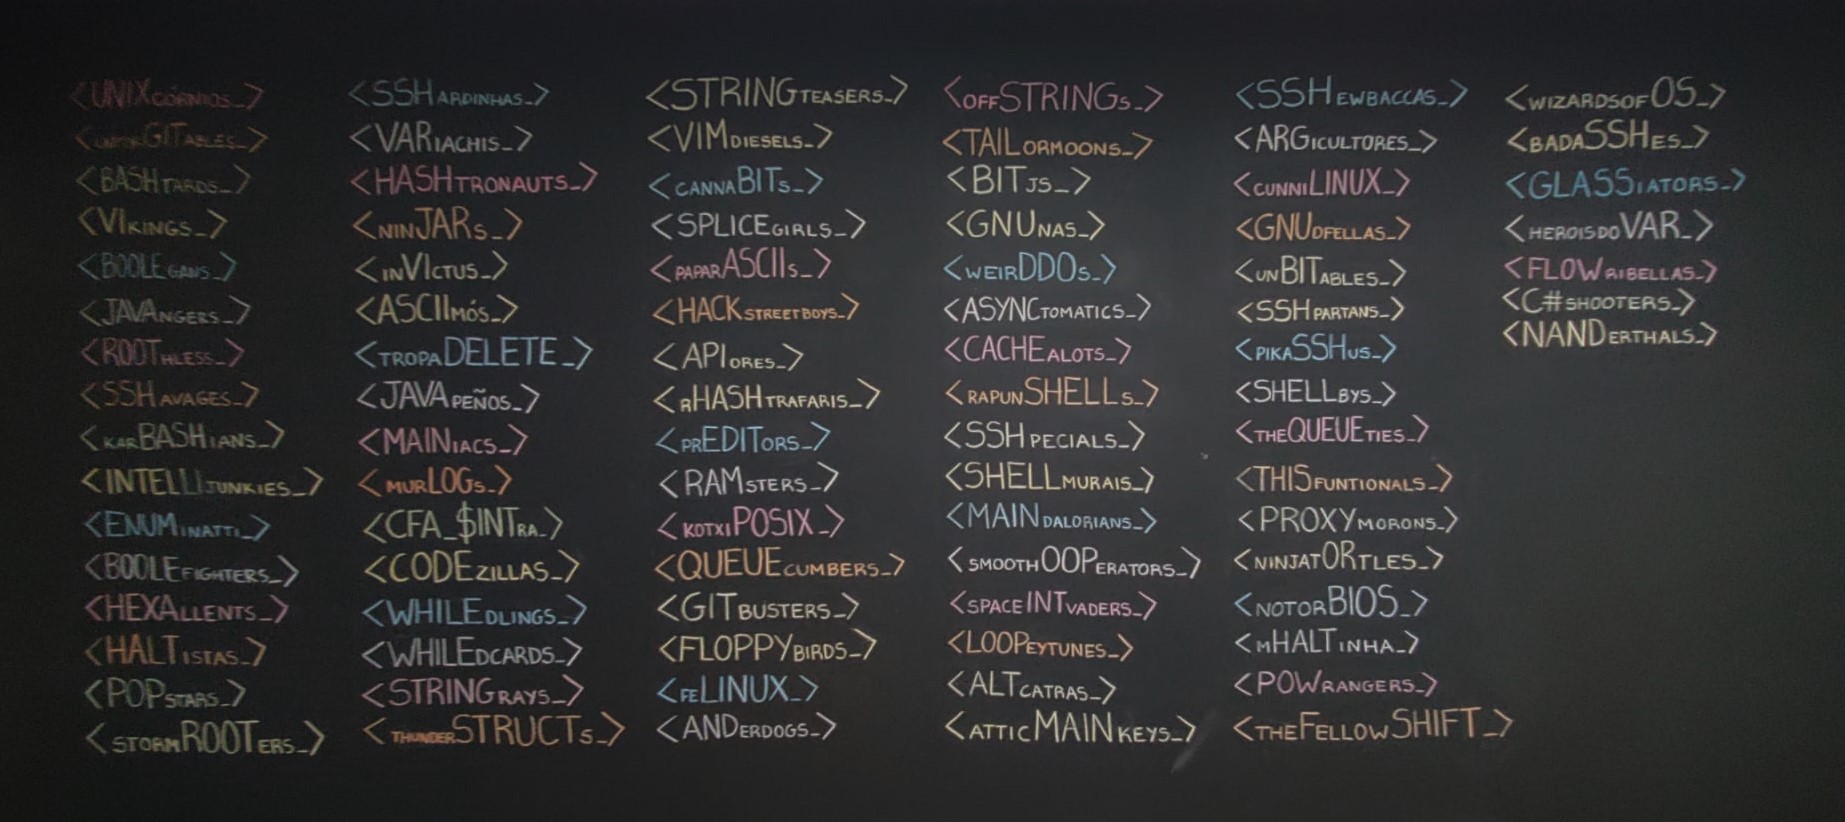 <UNIXCÓRNIOS_>
<UNFORGITABLES_>
<BASHTARDS_>
<VIKINGS_>
<BOOLEGANS_>
<JAVANGERS_>
<ROOTHLESS_>
<SSHAVAGES_>
<KARBASHIANS_>
<INTELLIJUNKIES_>
<ENUMINATTI_>
<BOOLEFIGHTERS_>
<HEXALLENTS_>
<HALTISTAS_>
<POPSTARS_>
<STORMROOTERS_>
<SSHARDINHAS_>
<VARIACHIS_>
<HASHTRONAUTS_>
<NINJARS_>
<INVICTUS_>
<ASCIIMÓS_>
<TROPADELETE_>
<JAVAPEÑOS_>
<MAINIACS_>
<MURLOGS_>
<CFA_$INTRA_>
<CODEZILLAS_>
<WHILEDLINGS_>
<WHILEDCARDS_>
<STRINGRAYS_>
<THUNDERSTRUCTS_>
<STRINGTEASERS_>
<VIMDIESELS_>
<CANNABITS_>
<SPLICEGIRLS_>
<PAPARASCIIS_>
<HACKSTREETBOYS_>
<APIORES_>
<RHASHTRAFARIS_>
<PREDITORS_>
<RAMSTERS_>
<KOTXIPOSIX_>
<QUEUECUMBERS_>
<GITBUSTERS_>
<FLOPPYBIRDS_>
<FELINUX_>
<ANDERDOGS_>
<OFFSTRINGS_>
<TAILORMOONS_>
<BITJS_>
<GNUNAS_>
<WEIRDDOS_>
<ASYNCTOMATICS_>
<CACHEALOTS_>
<RAPUNSHELLS_>
<SSHPECIALS_>
<SHELLMURAIS_>
<MAINDALORIANS_>
<SMOOTHOOPERATORS_>
<SPACEINTVADERS_>
<LOOPEYTUNES_>
<ALTCATRAS_>
<ATTICMAINKEYS_>
<SSHEWBACCAS_>
<ARGICULTORES_>
<CUNNILINUX_>
<GNUDFELLAS_>
<UNBITABLES_>
<SSHPARTANS_>
<PIKASSHUS_>
<SHELLBYS_>
<THEQUEUETIES_>
<THISFUNTIONALS_>
<PROXYMORONS_>
<NINJATORTLES_>
<NOTORBIOS_>
<MHALTINHA_>
<POWRANGERS_>
<THEFELLOWSHIFT_>
<WIZARDSOFOS_>
<BADASSHES_>
<GLASSIATORS_>
<HEROISDOVAR_>
<FLOWRIBELLAS_>
<C#SHOOTERS_>
<NANDERTHALS_>